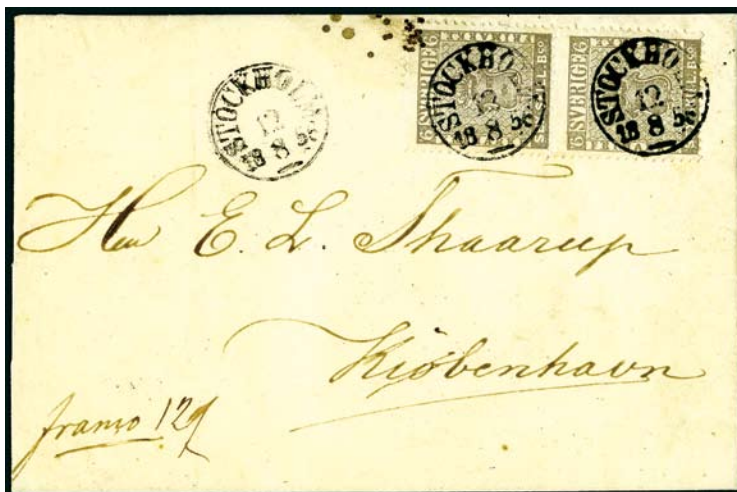 STOCKHOLM
12
18 8 58
6 SVERIGE 6
STOCKHOLM
12
18 8 58
6 SVERIGE 6
STOCKHOLM
12
18 8 58
Herr E. L. Thaarup
Kiöbenhavn
franco 12